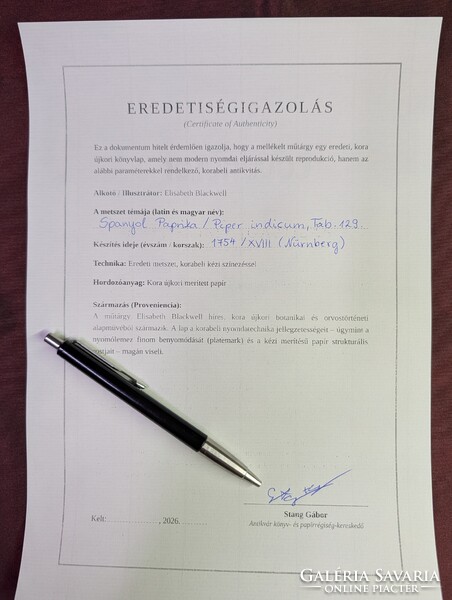 EREDETISÉGIGAZOLÁS
(Certificate of Authenticity)
Ez a dokumentum hitelt érdemlően igazolja, hogy a mellékelt műtárgy egy eredeti, kora
újkori könyvlap, amely nem modern nyomdai eljárással készült reprodukció, hanem az
alábbi paraméterekkel rendelkező, korabeli antikvitás.
Alkotó / Illusztrátor: Elisabeth Blackwell
A metszet témája (latin és magyar név):
Spanyol Paprika / Piper indicum, Tab. 129.
Készítés ideje (évszám / korszak): 1754 / XVIII (Nürnberg)
Technika: Eredeti metszet, korabeli kézi színezéssel
Hordozóanyag: Kora újkori merített papír
Származás (Proveniencia):
A műtárgy Elisabeth Blackwell híres, kora újkori botanikai és orvostörténeti
alapművéből származik. A lap a korabeli nyomdatechnika jellegzetességeit – úgymint a
nyomólemez finom benyomódását (platemark) és a kézi merítésű papír strukturális
rostjait – magán viseli.
Stang Gábor
Antikvár könyv- és papírrégiség-kereskedő
Kelt: , 2026.
GALÉRIA SAVARIA
ONLINE PIACTÉR